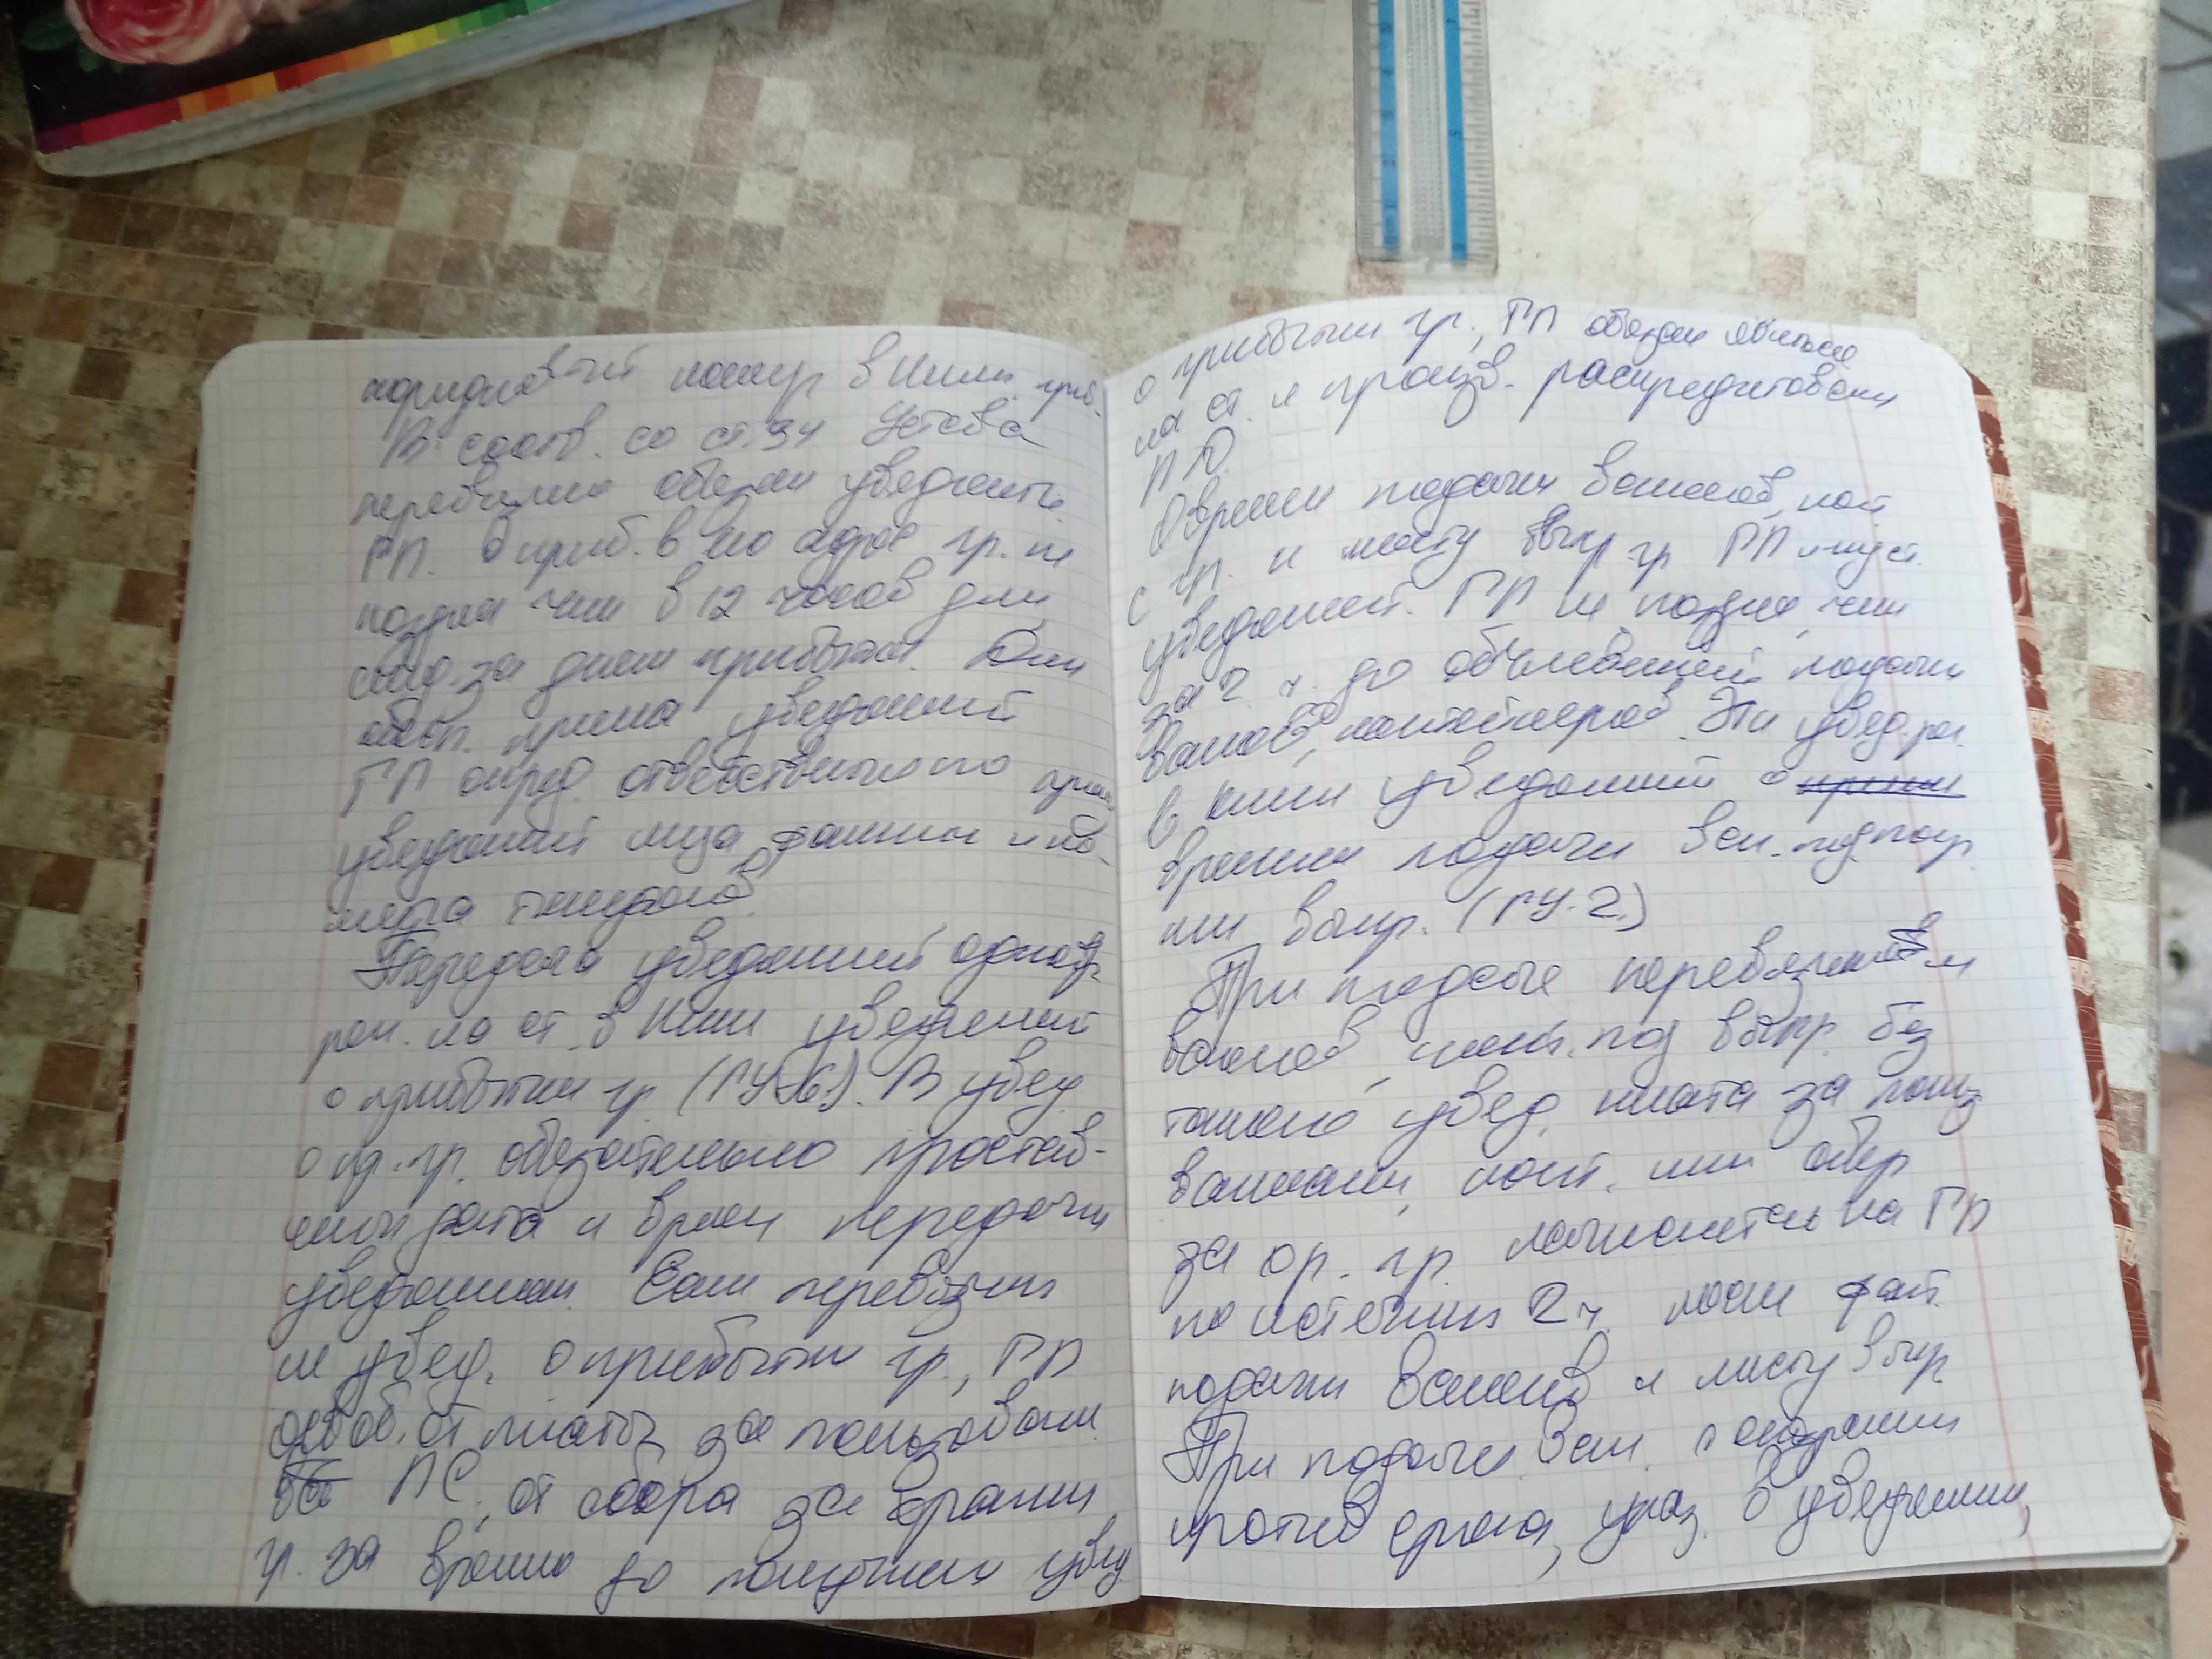 порядковый номер в Книги приб.
В соотв. со ст. 34 Устава
перевозчик обязан уведомить
ГП. о приб. в его адрес гр. не
поздн чем в 12 часов дня,
след. за днем прибытия. Для
обесп. приема уведомлений
ГП опред. ответственного по
уведомлений лица, фамилии и но-
мера телефонов.
Передача уведомлений
рег. на ст. в Книги уведомлений
о прибытии гр. (ГУ-). В увед.
о пр. гр. обязательно простав-
дата и время передачи
уведомления. Если перевозчик
не увед. о прибытии гр., ГП
освоб. от платы за пользован.
ПС, от сбора за хранен
гр. за время до получения увед.
о прибытии гр., ГП обязан явиться
на ст. и произв. раскредитован
ПД.
О времени подачи вагонов, конт
с гр. к месту выгр гр. ГП
уведомлен. ГП не поздне, чем
за 2 ч. до объявленной подачи
вагонов, контейнеров. Эти увед. рег.
в книги уведомлений о
времени подачи ваг. под погр.
или выгр. (ГУ-2.)
При подаче перевозчиком
вагонов, конт. под выгр. без
такого увед. плата за польз
вагонами, конт. или сбор
за хр. гр. начисляется на ГП
по истечении 2 ч. после факт.
подачи вагонов к месту выгр.
При подачи ваг. с опозданием
против срока, указ. в уведомлении,